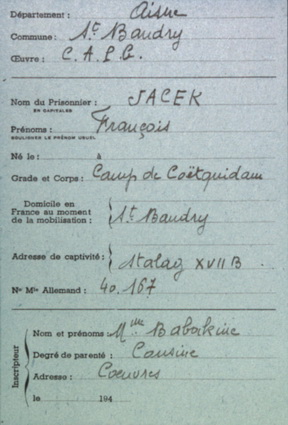 Département : Aisne
Commune : St Bandry
Œuvre : C. A. P. G.
Nom du Prisonnier : JACEK
EN CAPITALES
Prénoms : François
SOULIGNER LE PRÉNOM USUEL
Né le : à
Grade et Corps : Camp de Coëtquidam
Domicile en
France au moment
de la mobilisation : St Bandry
Adresse de captivité : Stalag XVII B
No Mle Allemand : 40.167
Inscripteur
Nom et prénoms : Mme
Degré de parenté : Cousine
Adresse : Coeuvres
le 194